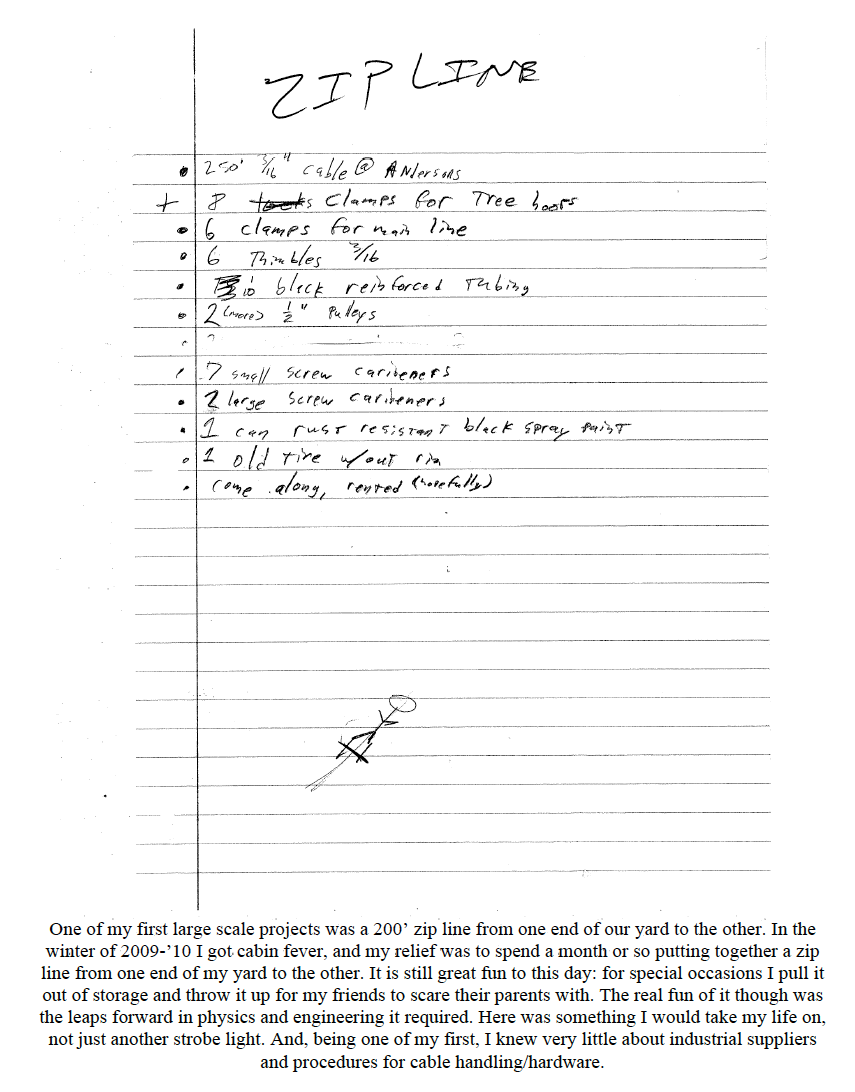 ZIP LINE
• 250' 3/16" cable @ Andersons
+ 8 clamps for Tree
• 6 clamps for main line
• 6 Thimbles 3/16
• 10 black reinforced Tubing
• 2 (more) 1/2" Pulleys
7 small screw caribeners
• 2 large screw caribeners
• 1 can rust resistant black spray paint
• 1 old tire w/out rim
• come along, rented (hopefully)
One of my first large scale projects was a 200’ zip line from one end of our yard to the other. In the
winter of 2009-’10 I got cabin fever, and my relief was to spend a month or so putting together a zip
line from one end of my yard to the other. It is still great fun to this day: for special occasions I pull it
out of storage and throw it up for my friends to scare their parents with. The real fun of it though was
the leaps forward in physics and engineering it required. Here was something I would take my life on,
not just another strobe light. And, being one of my first, I knew very little about industrial suppliers
and procedures for cable handling/hardware.